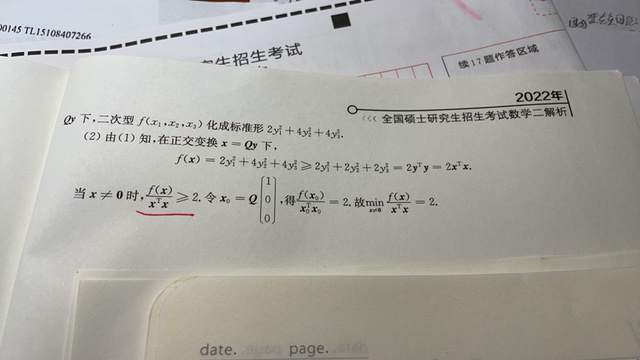 00145 TL15108407266
究生招生考试
续17题作答区域
2022年
<<< 全国硕士研究生招生考试数学二解析
Qy 下,二次型 f(x₁,x₂,x₃) 化成标准形 2y₁²+4y₂²+4y₃².
(2) 由(1) 知,在正交变换 x = Qy 下,
f(x) = 2y₁²+4y₂²+4y₃² ⩾ 2y₁²+2y₂²+2y₃² = 2yᵀy = 2xᵀx.
当 x ≠ 0 时, f(x)/xᵀx ⩾ 2. 令 x₀ = Q (1 0 0), 得 f(x₀)/x₀ᵀx₀ = 2. 故 min x≠0 f(x)/xᵀx = 2.
date. page.